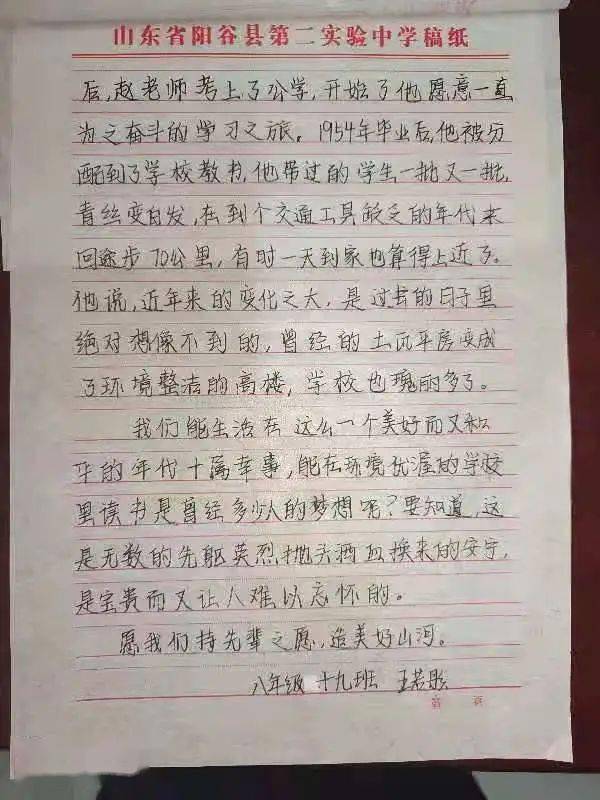 山东省阳谷县第二实验中学稿纸
后,赵老师考上了公学,开始了他愿意一直
为之奋斗的学习之旅。1954年毕业后,他被分
配到了学校教书,他带过的学生一批又一批,
青丝变白发,在到个交通工具缺乏的年代来
回途步70公里,有时一天到家也算得上近了。
他说,近年来的变化之大,是过去的日子里
绝对想像不到的,曾经的土瓦平房变成
了环境整洁的高楼,学校也瑰丽多了。
我们能生活在这么一个美好而又和
平的年代十属幸事,能在环境优渥的学校
里读书是曾经多少人的梦想呢?要知道,这
是无数的先躯英烈抛头洒血换来的安宁,
是宝贵而又让人难以忘怀的。
愿我们持先辈之愿,造美好山河。
八年级 十九班 王若彤
第 页